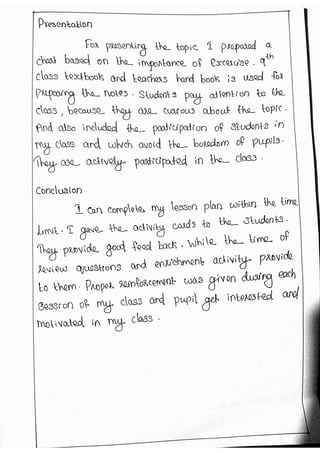 Presentation
For presenting the topic I prepared a
chat based on the importance of Excersise. 9th
class textbook and teachers hand book is used for
preparing the notes. Students pay attention to the
class, because they are curious about the topic.
And also included the participation of students in
my class and which avoid the boredom of pupils.
They are actively participated in the class.
Conclusion
I can complete my lesson plan within the time
limit. I gave the activity cards to the students.
They provide good feed back. While the time of
review questions and enrichment activity provide
to them. Proper reinforcement was given during each
session of my class and pupil get interested and
motivated in my class.